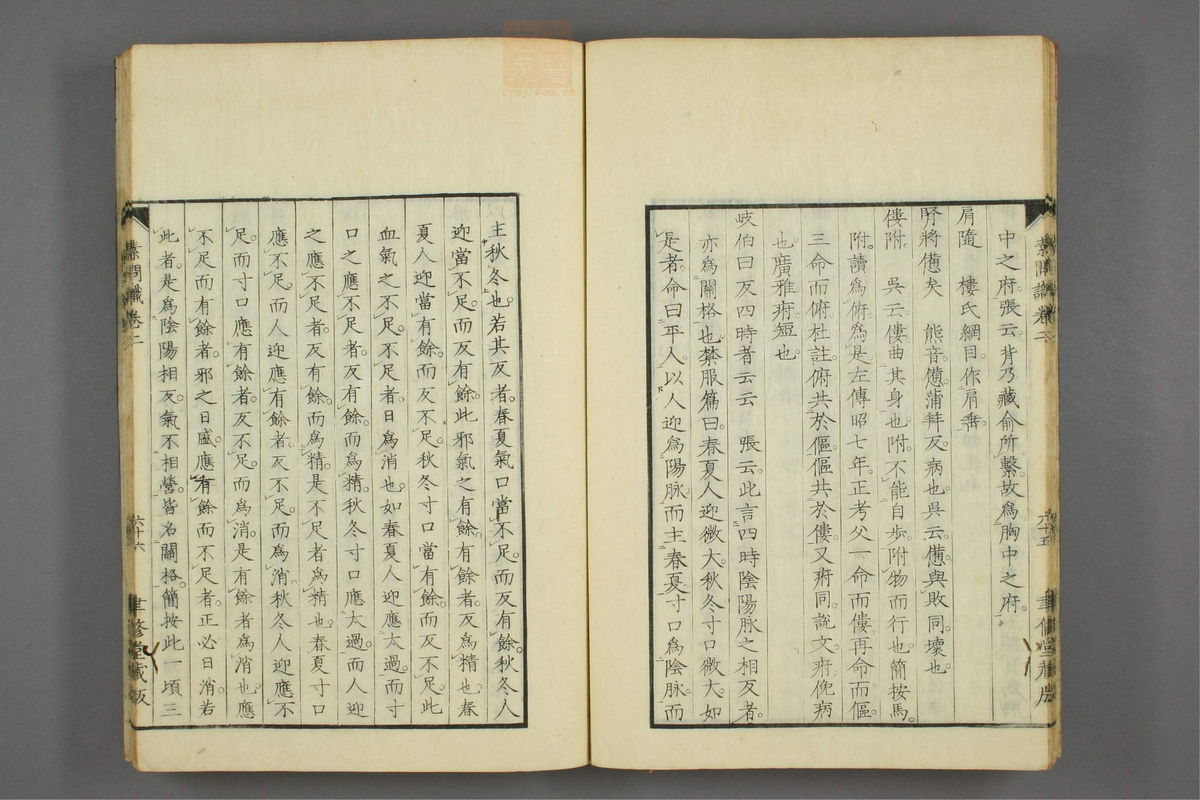 中之府張云背乃藏俞所繫故爲胸中之府
肩隨　樓氏綱目作肩
腎將憊矣　熊音憊蒲拜反病也吳云憊與敗同壞也
僂附　吳云僂曲其身也附不能自步附物而行也簡按馬
附讀爲俯爲是左傳昭七年正考父一命而僂再命而傴
三命而俯杜註俯共於傴傴共於僂又府同說文府俛病
也廣雅府短也
岐伯曰反四時者云云　張云此言四時陰陽脉之相反者
亦爲關格也禁服篇曰春夏人迎微大秋冬寸口微大如
是者命曰平人以人迎爲陽脉而主春夏寸口爲陰脉而
素問識卷二　六十五　聿修堂藏版
主秋冬也若其反者春夏氣口當不足而反有餘秋冬人
迎當不足而反有餘此邪氣之有餘有餘者反爲精也春
夏人迎當有餘而反不足秋冬寸口當有餘而反不足此
血氣之不足不足者日爲消也如春夏人迎應太過而寸
口之應不足者反有餘而爲精秋冬寸口應太過而人迎
之應不足者反有餘而爲精是不足者爲精也春夏寸口
應不足而人迎應有餘者反不足而爲消秋冬人迎應不
足而寸口應有餘者反不足而爲消是有餘者爲消也應
不足而有餘者邪之日盛應有餘而不足者正必日消若
此者是爲陰陽相反氣不相營皆名關格簡按此一項三
素問識卷二　六十六　聿修堂藏版